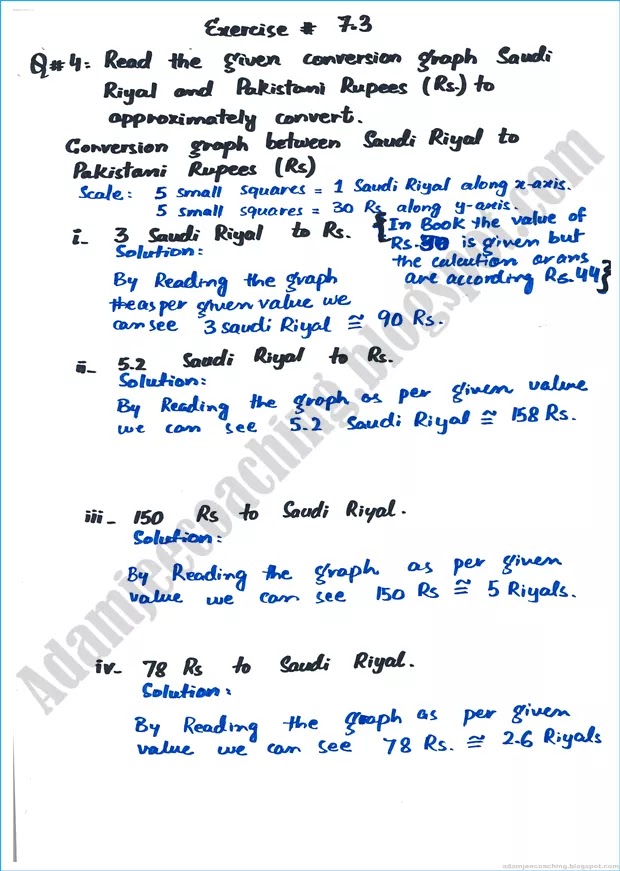 Exercise # 7.3
Q#4: Read the given conversion graph Saudi
Riyal and Pakistani Rupees (Rs.) to
approximately convert.
Conversion graph between Saudi Riyal to
Pakistani Rupees (Rs)
Scale: 5 small squares = 1 Saudi Riyal along x-axis.
5 small squares = 30 Rs along y-axis.
i- 3 Saudi Riyal to Rs.
{In Book the value of
Rs. is given but
the calcution or ans
are according Rs.44}
Solution:
By Reading the graph
the as per given value we
can see 3 saudi Riyal ≅ 90 Rs.
ii- 5.2 Saudi Riyal to Rs.
Solution:
By Reading the graph as per given value
we can see 5.2 Saudi Riyal ≅ 158 Rs.
iii- 150 Rs to Saudi Riyal.
Solution:
By Reading the graph as per given
value we can see 150 Rs ≅ 5 Riyals.
iv- 78 Rs to Saudi Riyal.
Solution:
By Reading the graph as per given
value we can see 78 Rs. ≅ 2.6 Riyals
Adamjeecoaching.blogspot.com
adamjeecoaching.blogspot.com